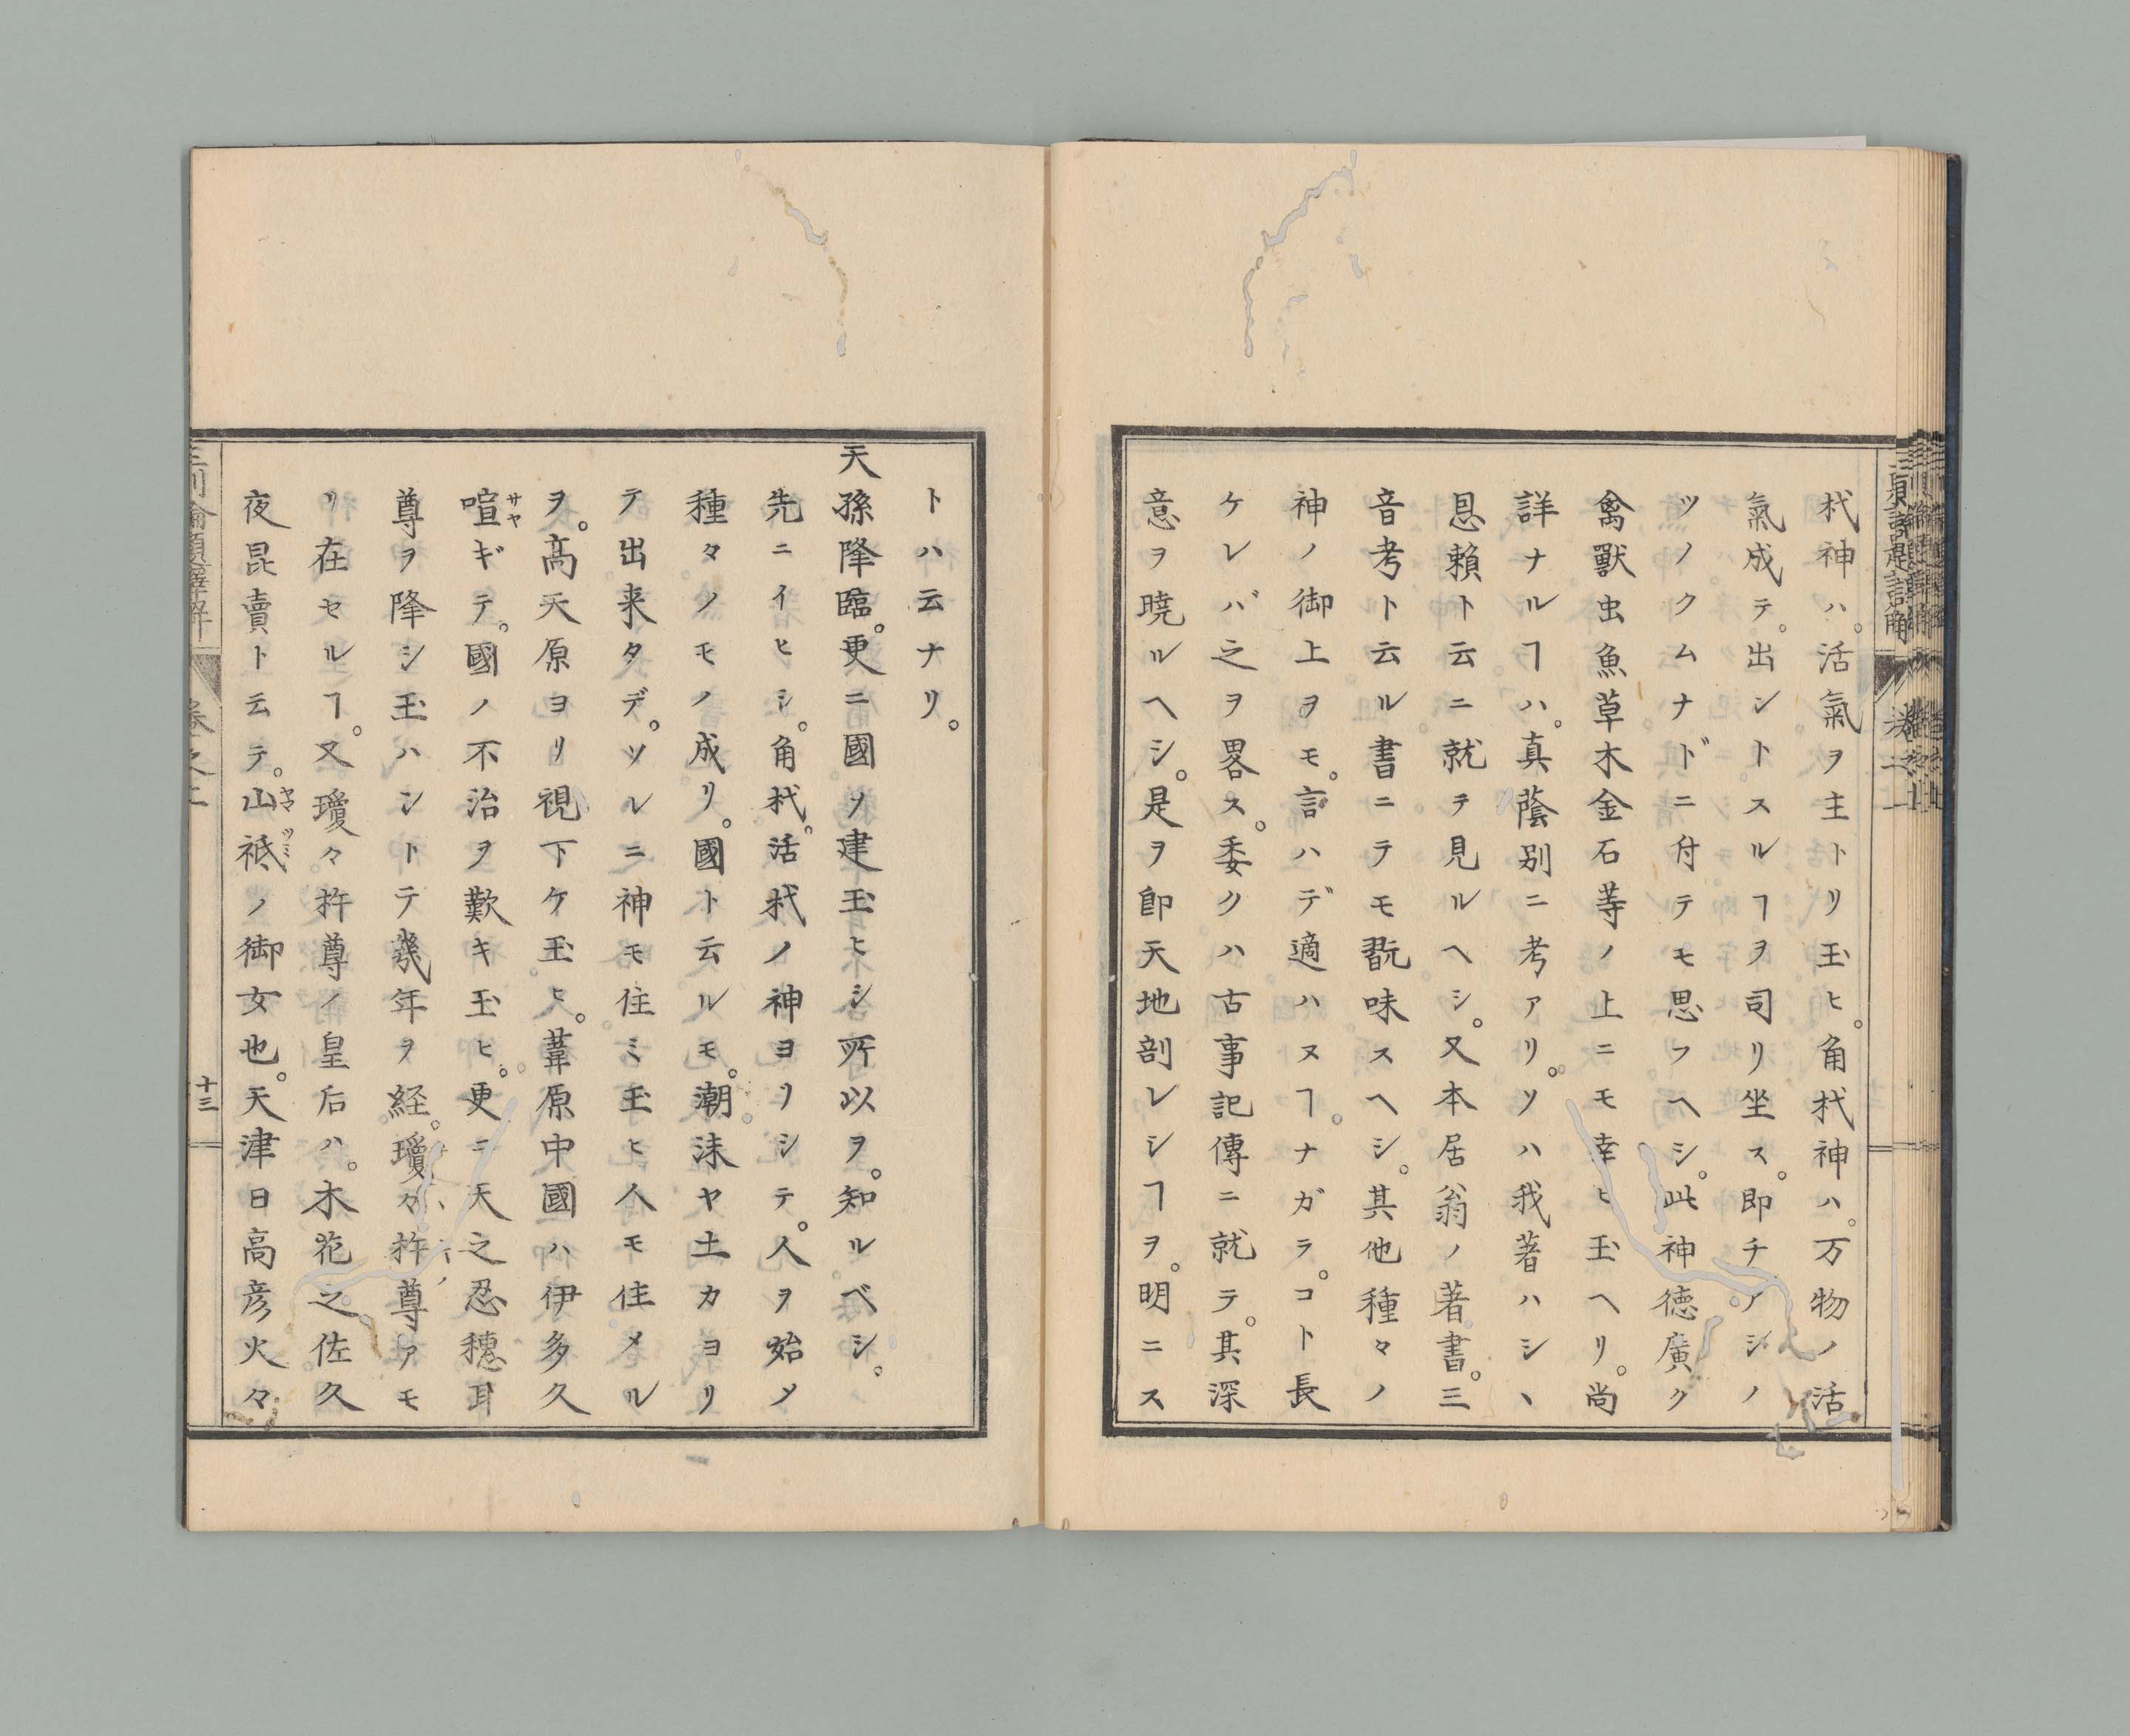 杙神ハ。活氣ヲ主トリ玉ヒ。角杙神ハ。万物ノ活
氣成テ。出ントスルヿヲ司リ坐ス。即チアシノ
ツノクムナドニ付テモ思フヘシ。此神徳廣ク
禽獸虫魚草木金石䓁ノ上ニモ幸ヒ玉ヘリ。尚
詳ナルヿハ。真蔭別ニ考アリ。ソハ我著ハシヽ
恩頼ト云ニ就テ見ルヘシ。又本居翁ノ著書。三
音考ト云ル書ニテモ翫味スヘシ。其他種々ノ
神ノ御上ヲモ。言ハデ適ハヌヿ。ナガラ。コト長
ケレバ之ヲ畧ス。委クハ古事記傳ニ就テ。其深
意ヲ曉ルヘシ。是ヲ卽天地剖レシヿヲ。明ニス
トハ云ナリ。
天孫降臨。更ニ國ソ建玉ヒシ所以ヲ。知ルベシ。
先ニイヒシ。角杙。活杙ノ神ヨリシテ。人ヲ始メ
種々ノモノ成リ。國ト云ルモ。潮沫ヤ土カヨリ
テ出来タデ。ソレニ神モ住ミ玉ヒ人モ住メル
ヲ。高天原ヨリ視下ケ玉ヒ。葦原中國ハ伊多久
喧ギテ。國ノ不治ヲ歎キ玉ヒ。更ニ天之忍穗耳
サヤ
尊ヲ降シ玉ハントテ幾年ヲ経。瓊々杵尊アモ
リ在セルヿ。又瓊々杵尊ノ皇后ハ。木花之佐久
夜昆賣ト云テ。山祇ノ御女也。天津日高彦火々
ヤマツミ
卷之二
十三